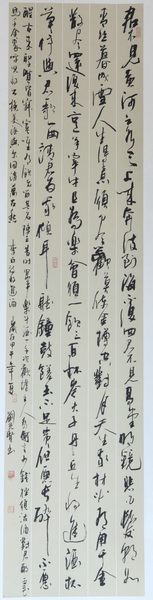 君不見黃河之水天上來奔流到海不復回君不見高堂明鏡悲白髮朝如
青絲暮成雪人生得意須盡歡莫使金樽空對月天生我材必有用千金
散盡還復來烹羊宰牛且為樂會須一飲三百杯岑夫子丹丘生將進酒杯
莫停與君歌一曲請君為我傾耳聽鐘鼓饌玉不足貴但願長醉不願
醒古來聖賢皆寂寞惟有飲者留其名陳王昔時宴平樂斗酒十千恣歡謔主人何為言少錢徑須沽取對君酌五花
馬千金裘呼兒將出換美酒與爾同銷萬古愁 李白將進酒 甲午年夏 劉 書